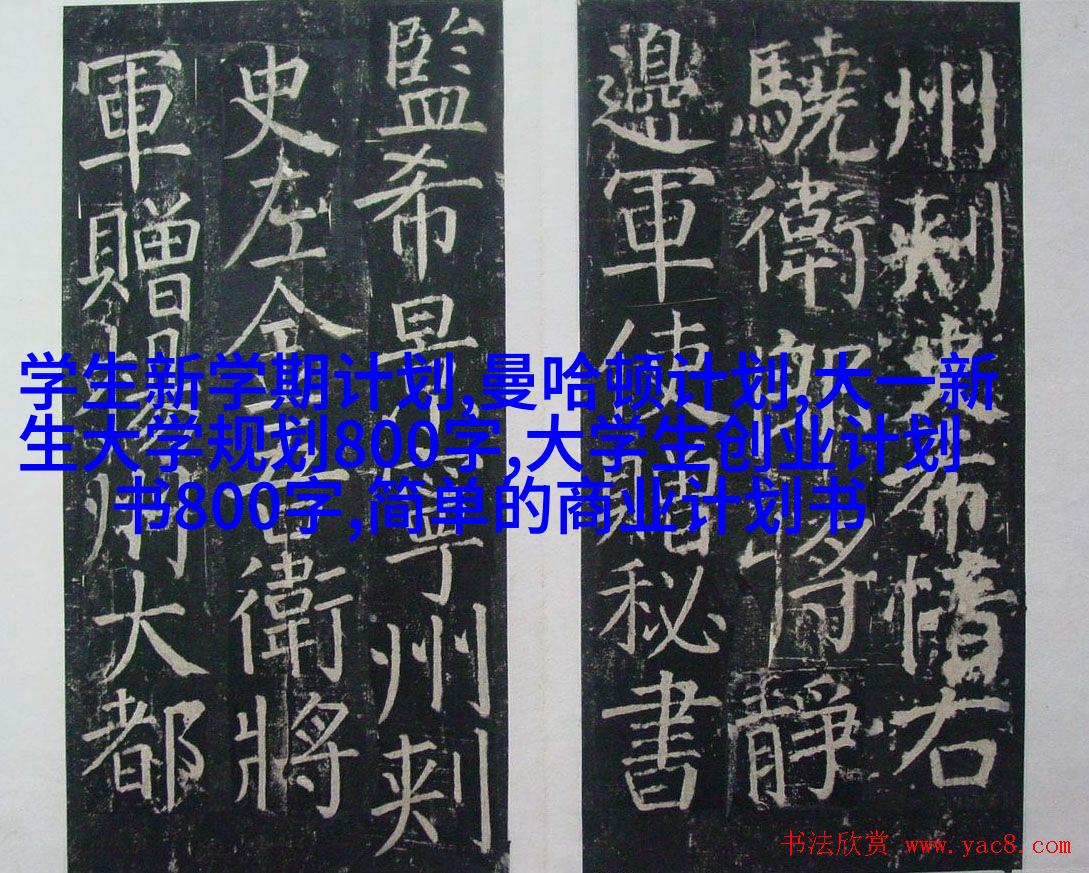 学生新学期计划,曼哈顿计划,大一新
生大学规划800字,大学生创业计划
书800字,简单的商业计划书
州刾希右
驍衛郎將靜
邊軍使贈秘書
監希景寧州刾
史左金吾衛將
軍贈州大都
书法欣赏 www.yac8.com